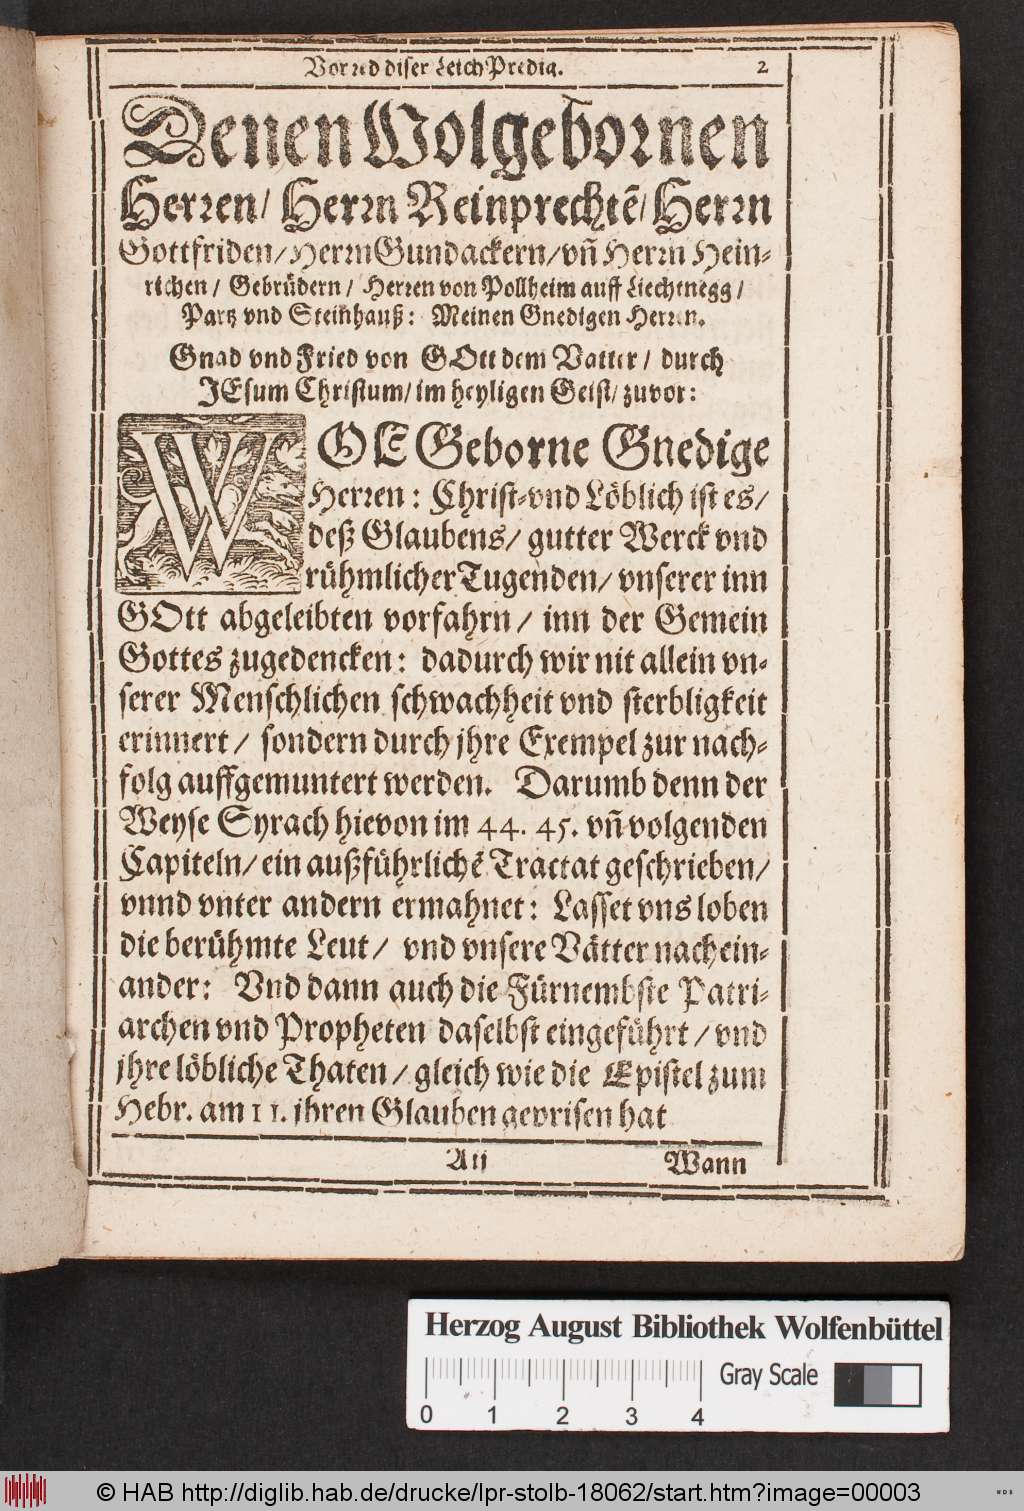 Vorred diser Leich Predig. 2
Denen Wolgebornen
Herren/ Herrn Reinprechtẽ/ Herrn
Gottfriden/ Herrn Gundackern/ vñ Herrn Hein-
richen/ Gebrüdern/ Herren von Pollheim auff Liechtnegg/
Partz vnd Steinhauß: Meinen Gnedigen Herren.
Gnad vnd Fried von GOtt dem Vatter/ durch
JEsum Christum/ im heyligen Geist/ zuvor:
WOL Geborne Gnedige
Herren: Christ-vnd Löblich ist es/
deß Glaubens/ gutter Werck vnd
rühmlicher Tugenden/ vnserer inn
GOtt abgeleibten vorfahrn/ inn der Gemein
Gottes zugedencken: dadurch wir nit allein vn-
serer Menschlichen schwachheit vnd sterbligkeit
erinnert/ sondern durch jhre Exempel zur nach-
folg auffgemuntert werden. Darumb denn der
Weyse Syrach hievon im 44. 45. vñ volgenden
Capiteln/ ein außführlichẽ Tractat geschrieben/
vnnd vnter andern ermahnet: Lasset vns loben
die berühmte Leut/ vnd vnsere Vätter nach ein-
ander: Vnd dann auch die Fürnembste Patri-
archen vnd Propheten daselbst eingeführt/ vnd
jhre löbliche Thaten/ gleich wie die Epistel zum
Hebr. am 11. jhren Glauben geprisen hat
Aij Wann
Herzog August Bibliothek Wolfenbüttel
Gray Scale
0 1 2 3 4
© HAB http://diglib.hab.de/drucke/lpr-stolb-18062/start.htm?image=00003